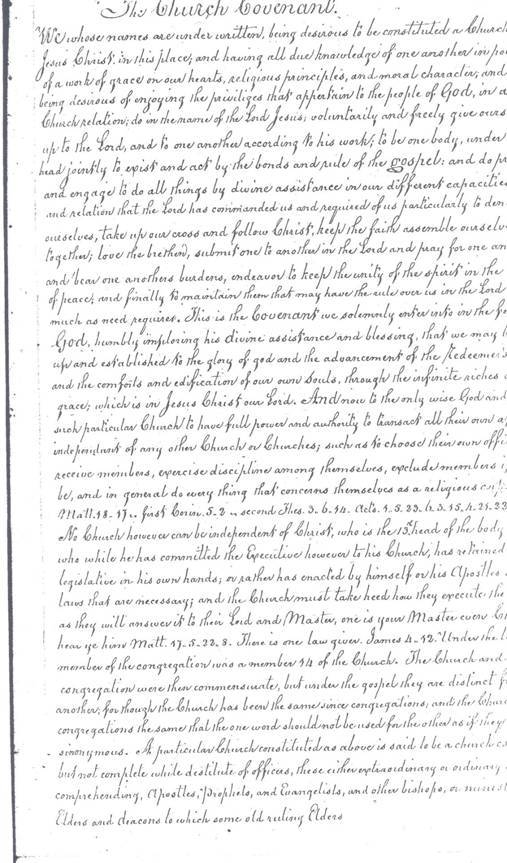 The Church Covenant.
We whose names are under written, being desirous to be constituted a Church
Jesus Christ in this place; and having all due knowledge of one another in po
of a work of grace on our hearts, religious principles, and moral character; and
being desirous of enjoying the priviliges that appertain to the people of God, in a
Church relation; do in the name of the Lord Jesus; voluntarily and freely give ours
up to the Lord, and to one another according to his work; to be one body, under
head jointly to exist and act by the bonds and rule of the gospel: and do pr
and engage to do all things by divine assistance in our different capacitie
and relation that the Lord has commanded us and required of us particularly to den
ourselves, take up our cross and follow Christ, keep the faith assemble ourselv
together; love the brethern, submit one to another in the Lord and pray for one an
and bear one anothers burdens, endeavor to keep the unity of the spirit in the
of peace; and finally to maintain them that may have the rule over us in the Lord
much as need requires. This is the Covenant we solemnly enter into in the
God, humbly imploring his divine assistance and blessing, that we may b
up and established to the glory of god and the advancement of the Redeemer's
and the comforts and edification of our own souls, through the infinite riches
grace; which is in Jesus Christ our Lord. And now to the only wise God and
such particular Church to have full power and authority to transact all their own a
independant of any other Church or Churches; such as to choose their own offi
receive members, exercise discipline among themselves, exclude members i
be, and in general do every thing that concerns themselves as a religious
Matt. 18-17.. first Corin. 5-2.. second Thes. 3-6-14. Acts. 1.5.23-
No Church however can be independent of Christ, who is the head of the body
who while he has committed the Executive however to his Church, has retained
legislative in his own hands; or rather has enacted by himself or his Apostles
laws that are necessary; and the Church must take heed how they execute the
as they will answer it to their Lord and Master, one is your Master even
hear ye him Matt. 17-5-22-8. There is one law giver. James 4-12. Under the
member of the congregation was a member 14 of the Church. The Church and
congregation were then commensurate, but under the gospel they are distinct f
another; for though the Church has been the same since congregations; and the Churc
congregations the same that the one word should not be used for the other as if they
sinonymous. A particular Church constituted as above is said to be a church
but not complete while distitute of officers, these either extraordinary or ordinary
comprehending, Apostles, Prophets, and Evangelists, and other bishops, or minist
Elders and deacons to which some old ruling Elders